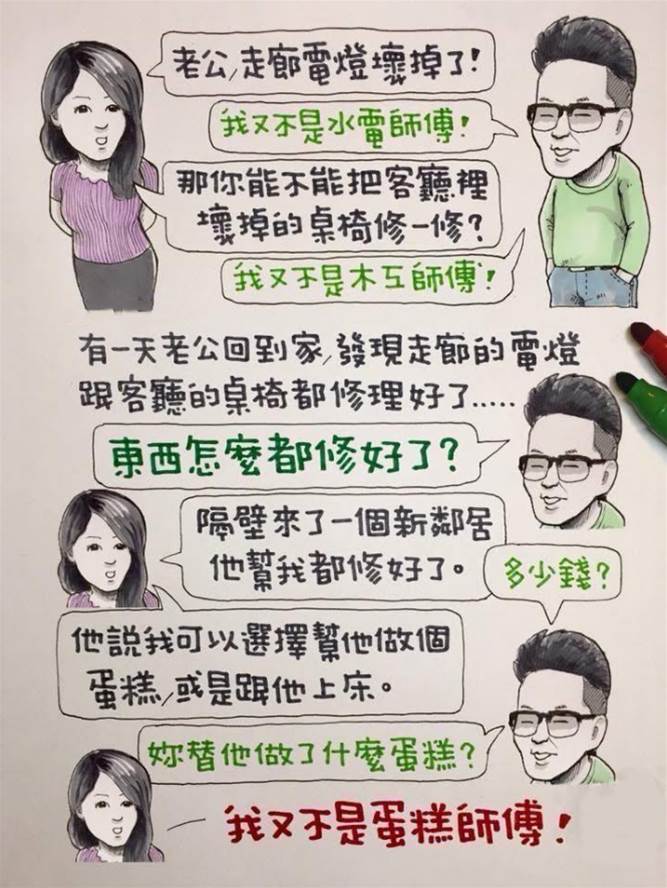 老公,走廊電燈壞掉了!
我又不是水電師傅!
那你能不能把客廳裡
壞掉的桌椅修一修?
我又不是木工師傅!
有一天老公回到家,發現走廊的電燈
跟客廳的桌椅都修理好了.....
東西怎麼都修好了?
隔壁來了一個新鄰居
他幫我都修好了。
多少錢?
他說我可以選擇幫他做個
蛋糕,或是跟他上床。
妳替他做了什麼蛋糕?
我又不是蛋糕師傅!